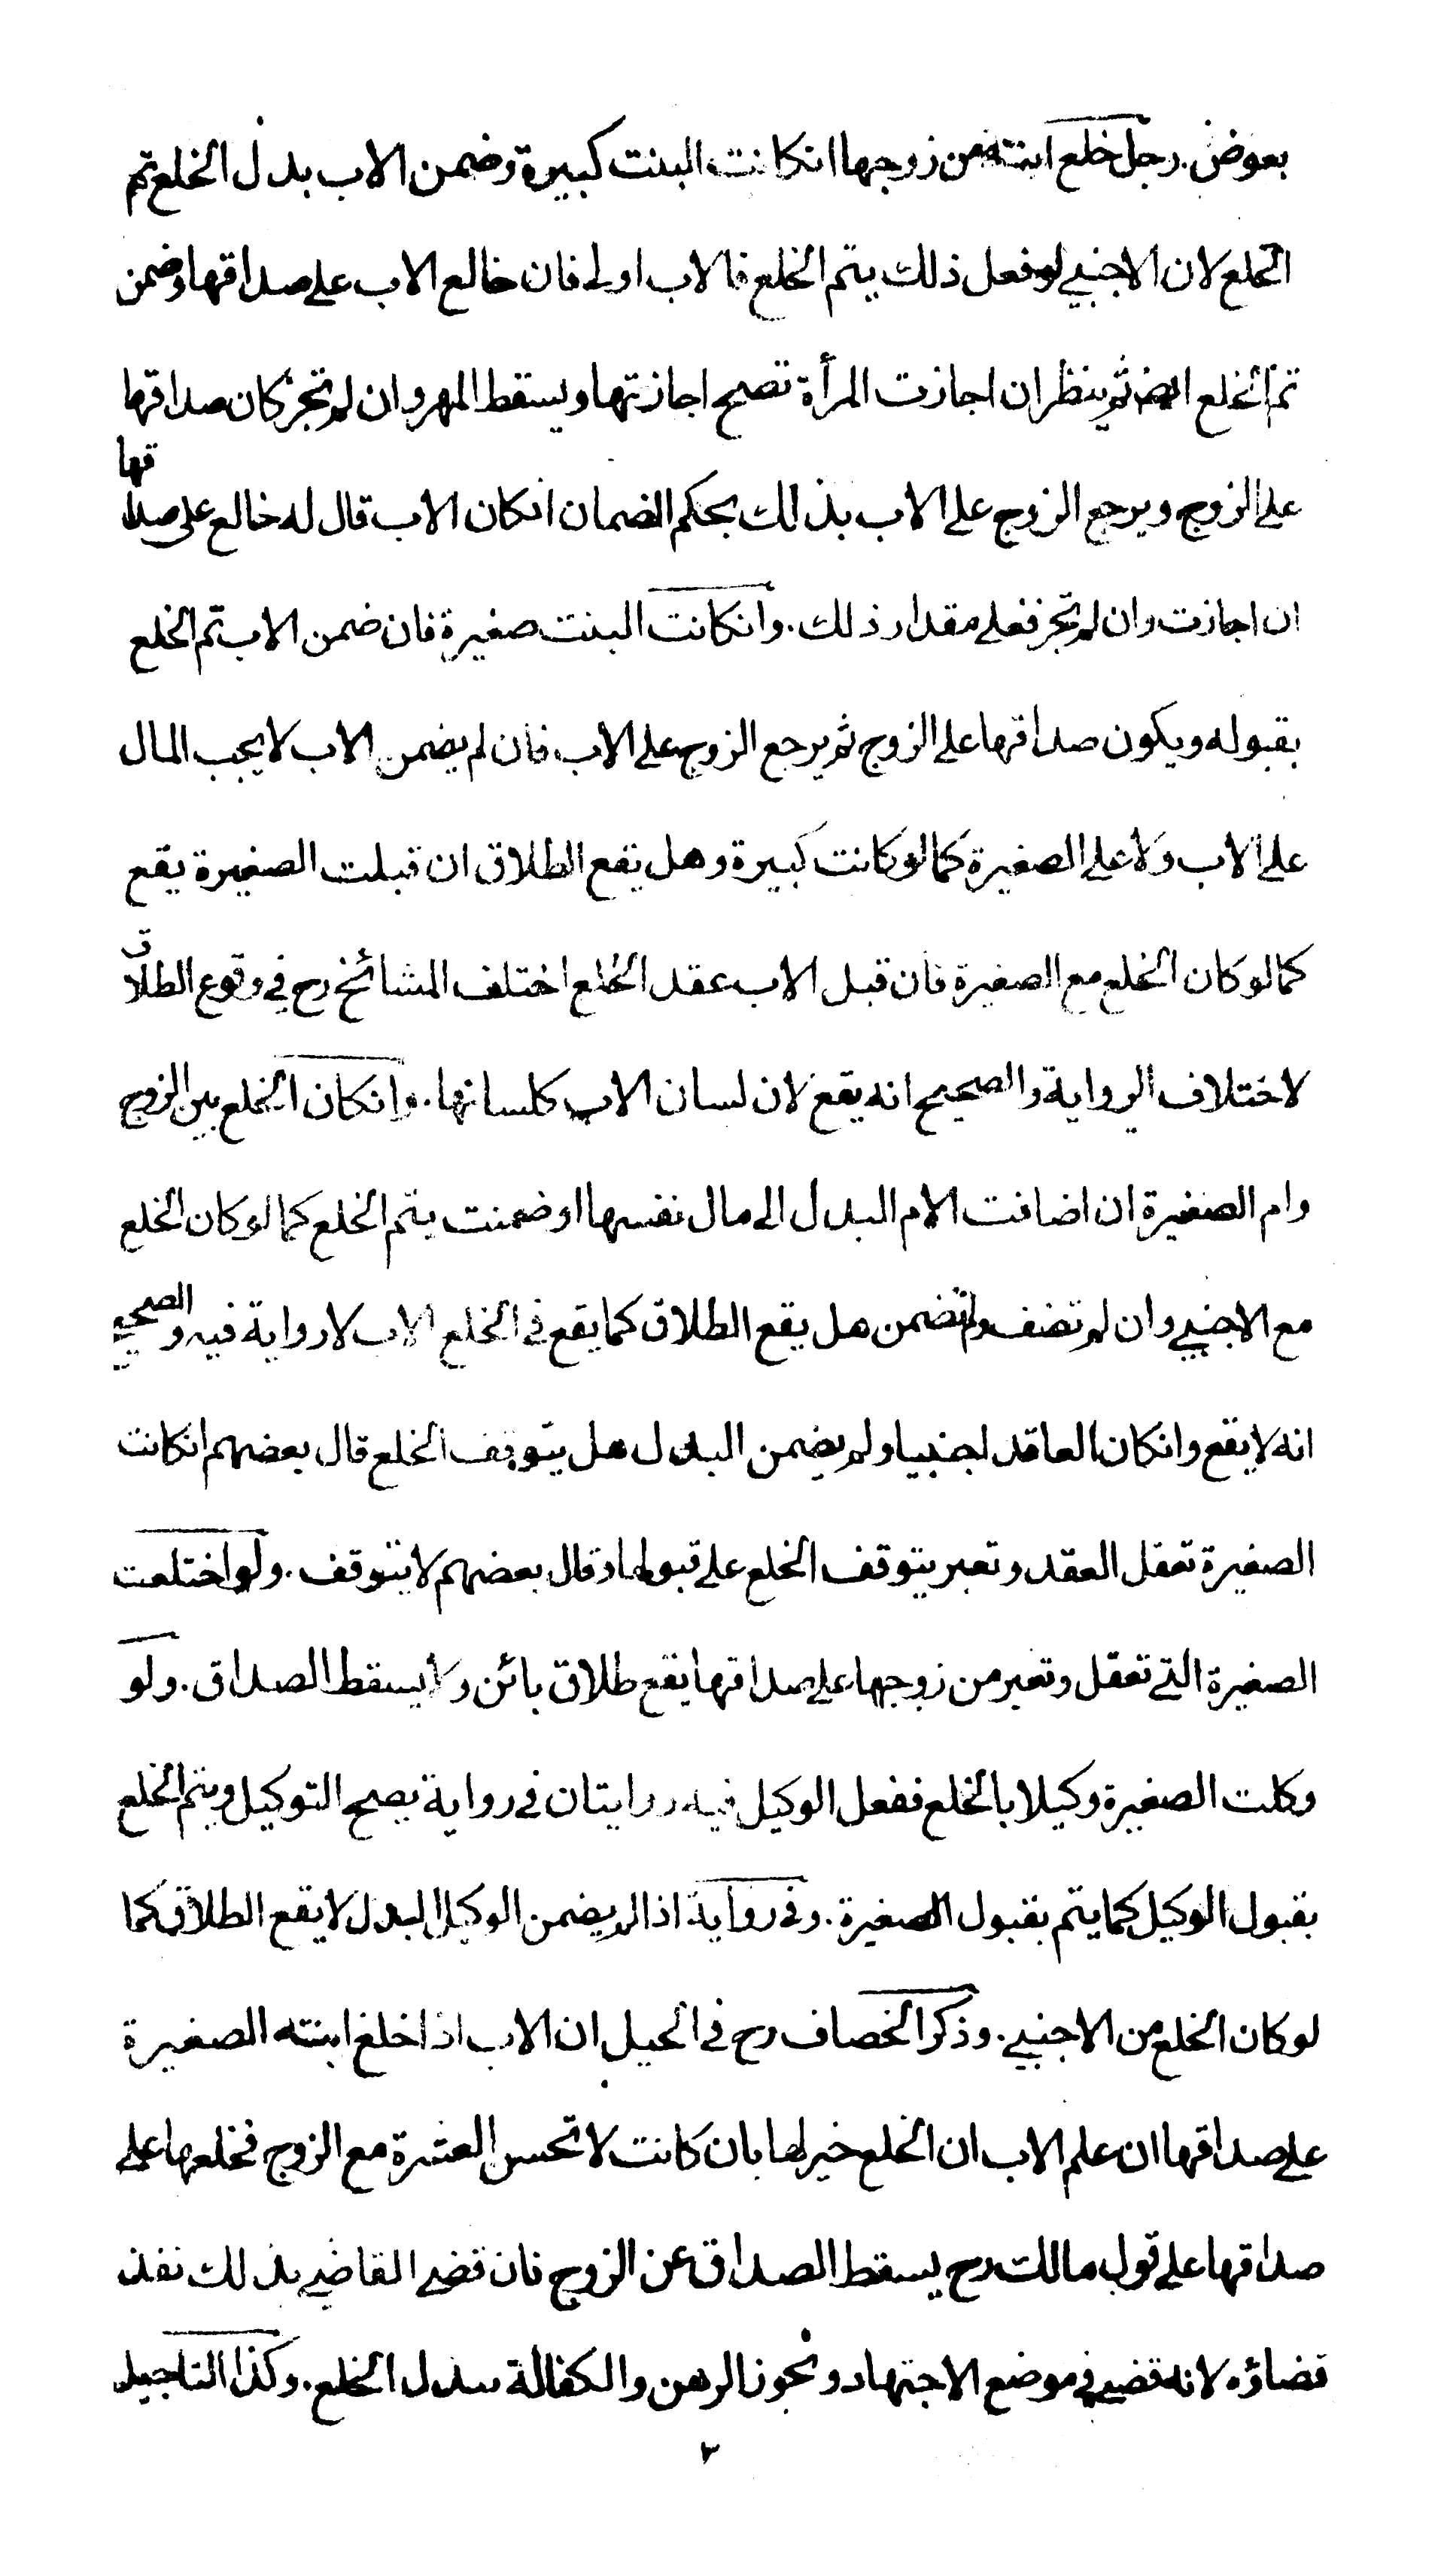 بعوض . رجل خلع ابنته من زوجها انكانت البنت كبيرة وضمن الاب بدل الخلع تم
الخلع لان الاجنبي لو فعل ذلك يتم الخلع فالاب اولى فان خالع الاب على صداقها وضمن
تم الخلع ايضا ثم ينظر ان اجازت المرأة تصح اجازتها ويسقط المهر وان لم تجز كان صداقها
على الزوج ويرجع الزوج على الاب بذلك بحكم الضمان انكان الاب قال له خالع على صداقها
ان اجازت وان لم تجز فعلى مقدار ذلك . وانكانت البنت صغيرة فان ضمن الاب تم الخلع
بقبوله ويكون صداقها على الزوج ثم يرجع الزوج على الاب فان لم يضمن الاب لا يجب المال
على الاب ولا على الصغيرة كما لو كانت كبيرة وهل يقع الطلاق ان قبلت الصغيرة يقع
كما لو كان الخلع مع الصغيرة فان قبل الاب عقد الخلع اختلف المشائخ رح في وقوع الطلاق
لاختلاف الرواية والصحيح انه يقع لان لسان الاب كلسانها . وانكان الخلع بين الزوج
وام الصغيرة ان اضافت الام البدل الى مال نفسها او ضمنت يتم الخلع كما لو كان الخلع
مع الاجنبي وان لم تضف ولم تضمن هل يقع الطلاق كما يقع في الخلع الاب لا رواية فيه والصحيح
انه لا يقع وانكان العاقد اجنبيا ولم يضمن البدل هل يتوقف الخلع قال بعضهم انكانت
الصغيرة تعقل العقد وتعبر يتوقف الخلع على قبولها وقال بعضهم لا يتوقف . ولو اختلعت
الصغيرة التي تعقل وتعبر من زوجها على صداقها يقع طلاق بائن ولا يسقط الصداق . ولو
وكلت الصغيرة وكيلا بالخلع ففعل الوكيل فيه روايتان في رواية يصح التوكيل ويتم الخلع
بقبول الوكيل كما يتم بقبول الصغيرة . وفي رواية اذا لم يضمن الوكيل البدل لا يقع الطلاق كما
لو كان الخلع من الاجنبي . وذكر الخصاف رح في الحيل ان الاب اذا خلع ابنته الصغيرة
على صداقها ان علم الاب ان الخلع خير لها بان كانت لا تحسن العشرة مع الزوج فخلعها على
صداقها على قول مالك رح يسقط الصداق عن الزوج فان قضى القاضي بذلك نفذ
قضاؤه لانه قضى في موضع الاجتهاد ونجوز الرهن والكفالة ببدل الخلع . وكذا التاجيل